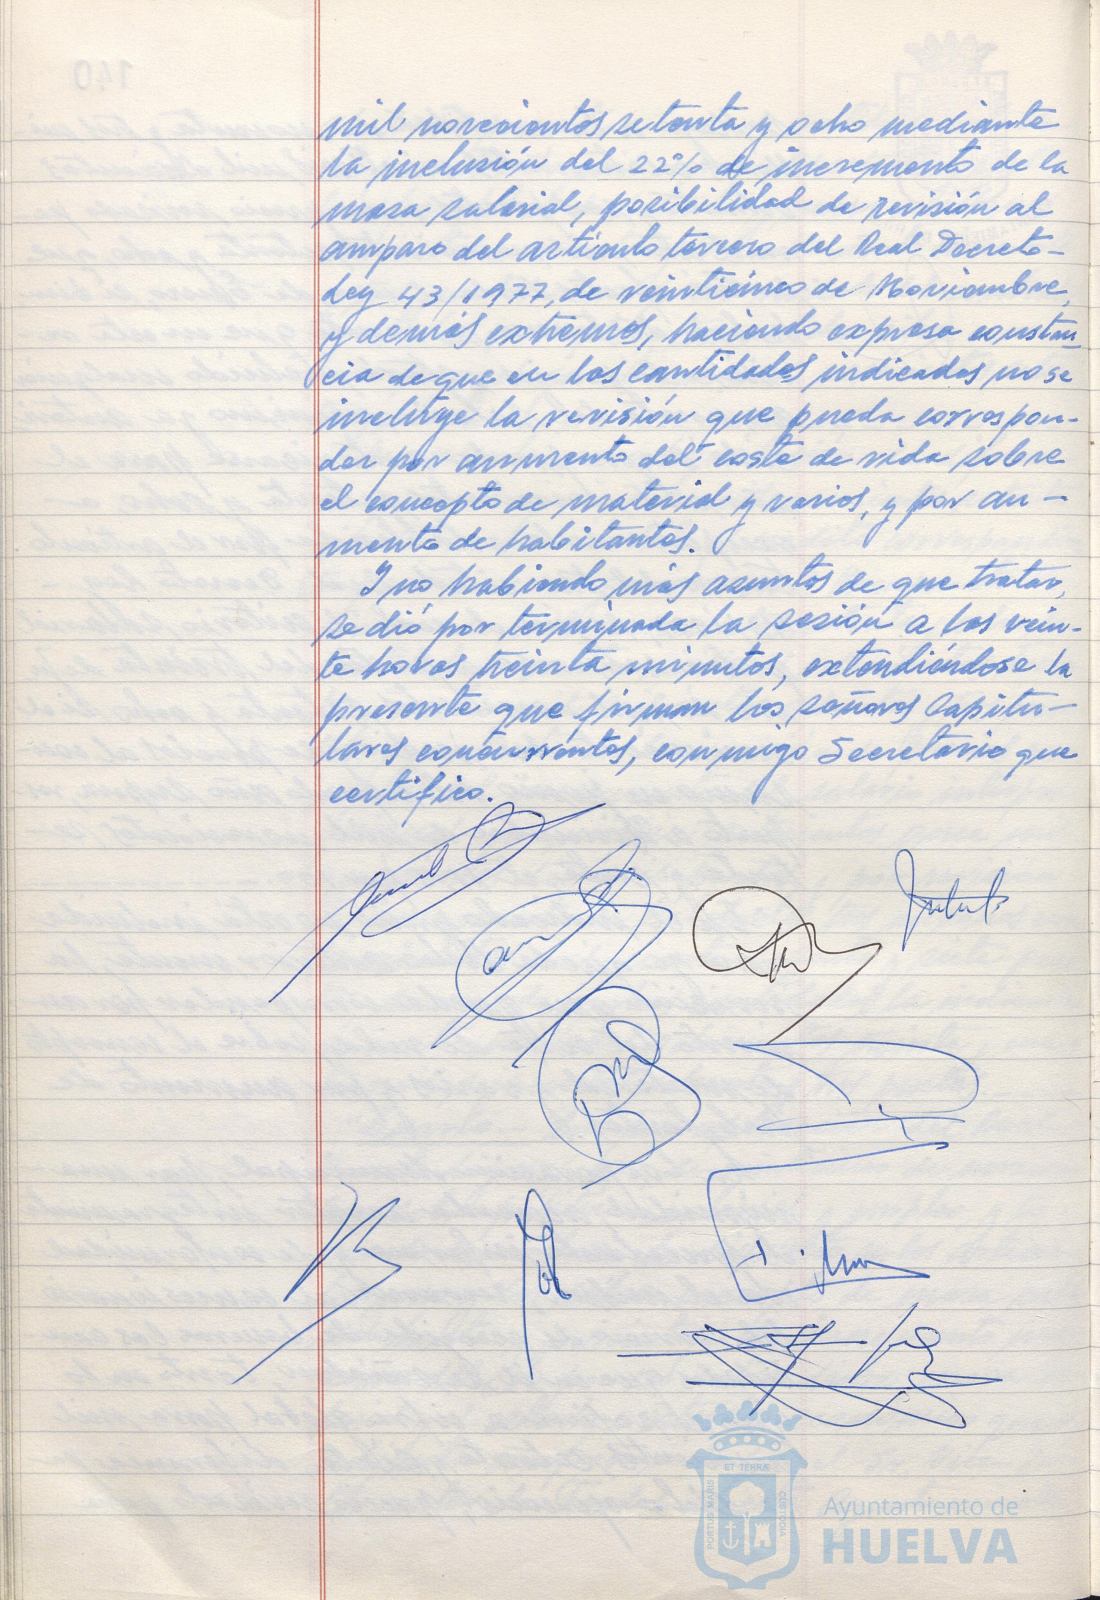 mil novecientos setenta y ocho mediante
la inclusión del 22% de incremento de la
masa salarial, posibilidad de revisión al
amparo del artículo tercero del Real Decreto-
Ley 43/1977, de veinticinco de Noviembre,
y demás extremos, haciendo expresa constan-
cia de que en las cantidades indicadas no se
incluye la revisión que pueda correspon-
der por aumento del coste de vida sobre
el concepto de material y varios, y por au-
mento de habitantes.
Y no habiendo más asuntos de que tratar,
se dió por terminada la sesión a las vein-
te horas treinta minutos, extendiéndose la
presente que firman los señores Capitu-
lares concurrentes, conmigo Secretario que
certifico.
ET TERRÆ
PORTUS MARIS
CUSTODIA
Ayuntamiento de
HUELVA